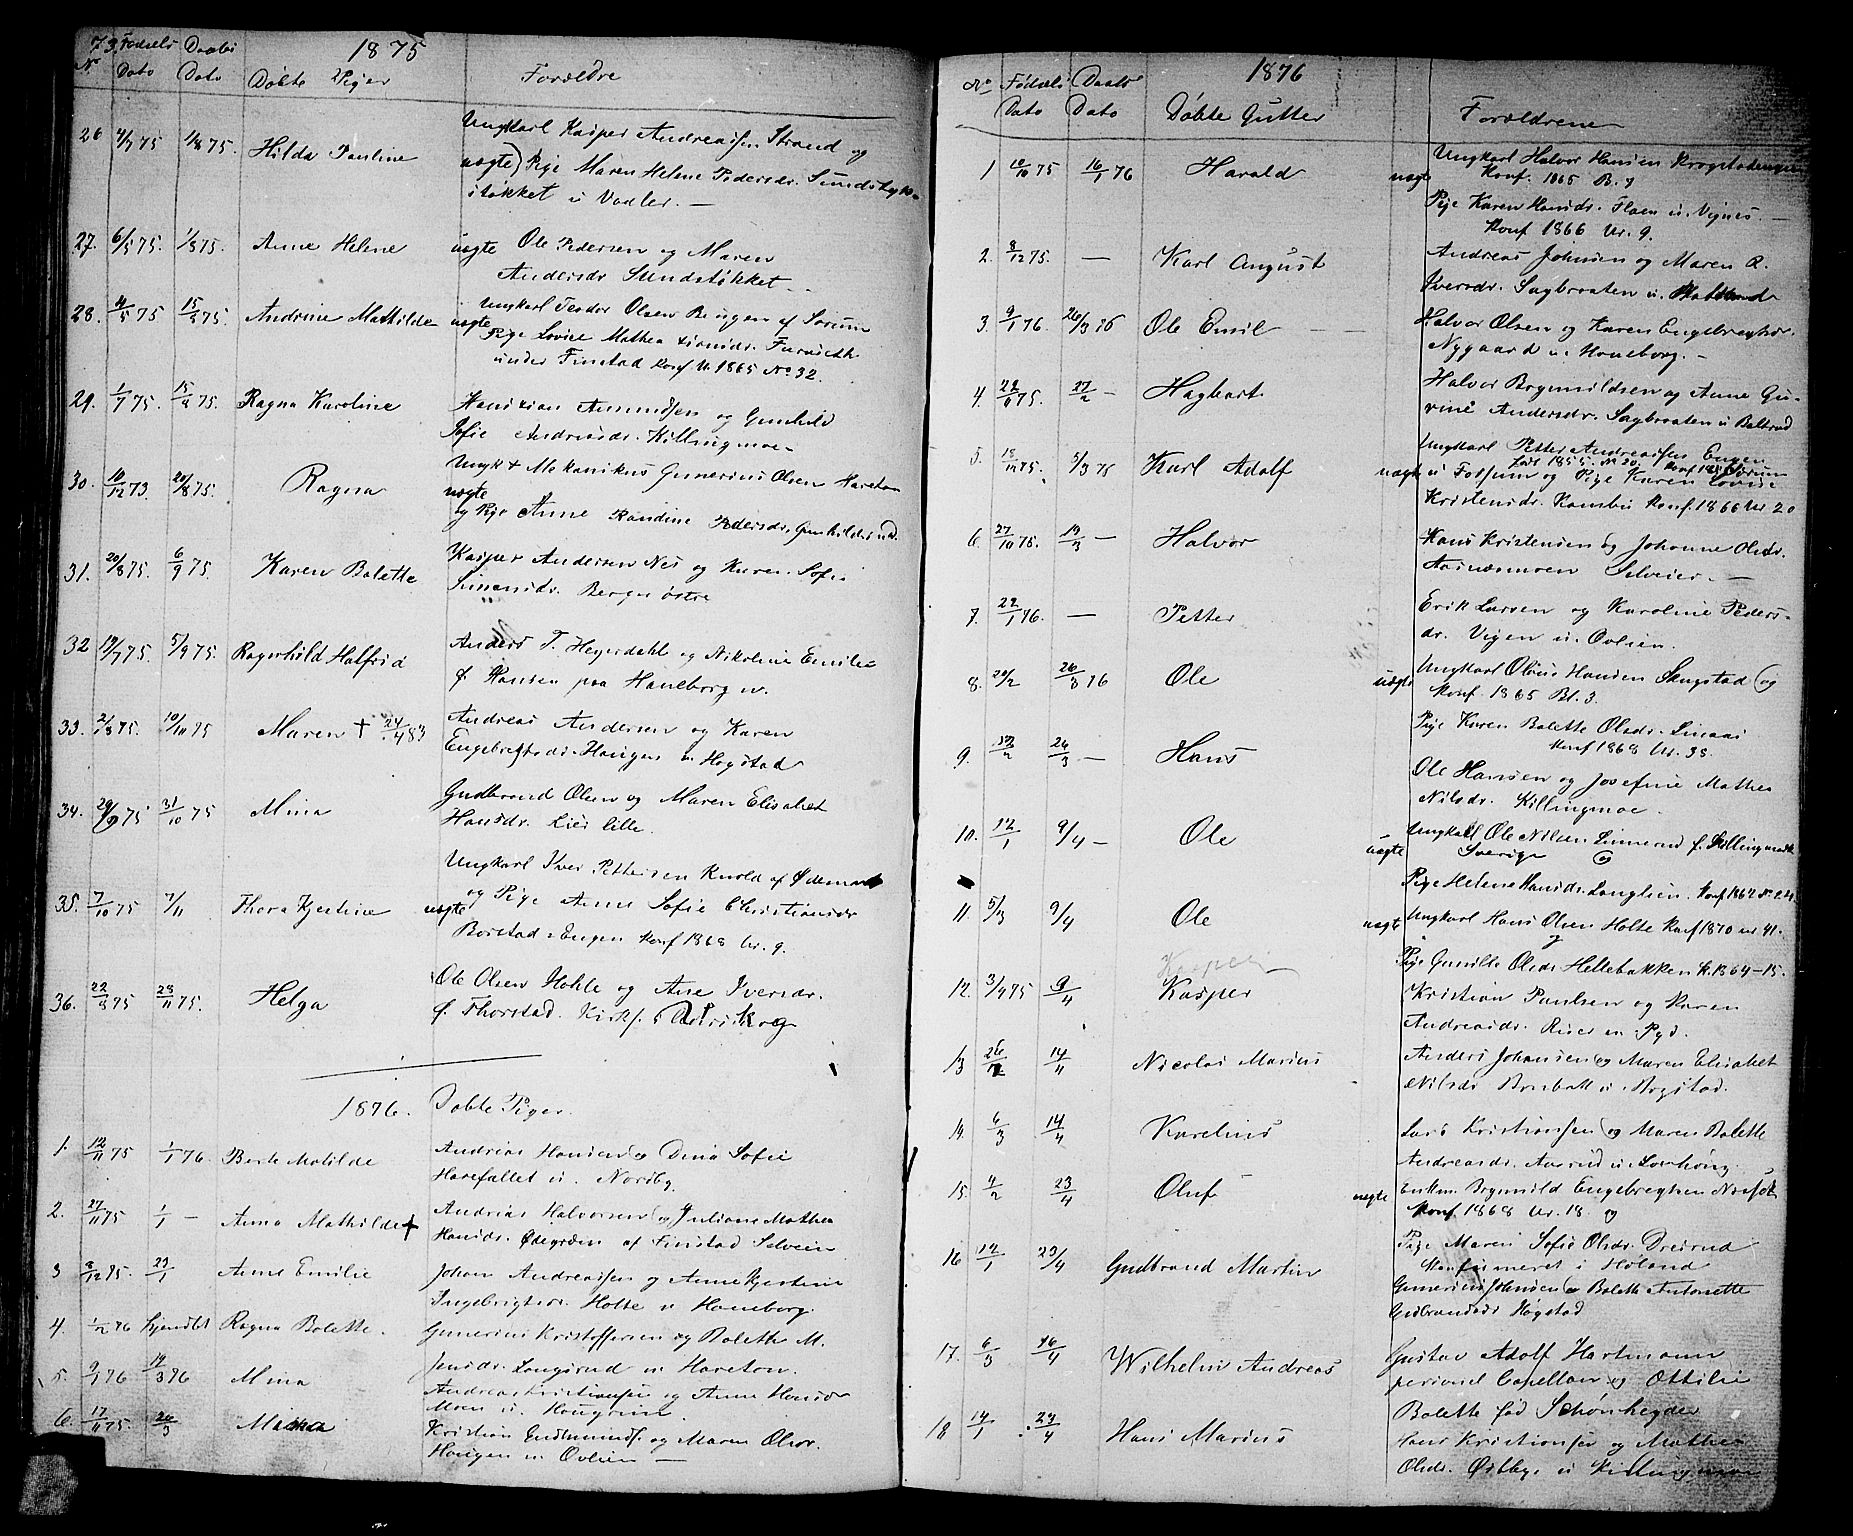 73.
1875
Nr
Fødsels Dato
Daabs Dato
Døbte Piger
Forældre
26 4/7 75 1/8 75. Hilda Pauline
Ungkarl Kasper Andreasen Strand og
uægte) Pige Maren Helene Pedersdr. Sundstyk-
støkket u Vadler. —
27. 6/5 75 1/8 75. Anne Helene
uægte Ole Pedersen og Maren
Andersdr Sundstøkket
28. 4/5 75 15/8 75. Andrine Mathilde
Ungkarl Olsen af Sørum
uægte Pige Lovise Mathea
under Finstad Konf Nr. 1865 No 32.
29. 1/7 75. 15/8 75. Ragna Karoline
Amundsen og Gunhild
Sofie Andreasdr. Killingmoe
30. 10/12 73. 20/8 75. Ragna
Ungk + Mekanikus Gunerius Olsen Hareton
uægte
og Pige Anne Randine Pedersdr. Gunhildsrud.
31. 20/8 75. 6/9 75. Karen Bolette
Kasper Andersen Nes og Karen Sofie
Simensdr. Berger østre
32 19/7 75. 5/9 75. Ragnhild Halfrid
Anders T. Heyerdahl og Nikoline Emilie
f. Hansen paa Haneborg n.
33. 2/8 75. 10/10 75 Maren + 24/4 83
Andreas Andersen og Karen
Engebretsdr. Haugen u Høgstad
34. 29/9 75 31/10 75 Mina
Gudbrand Olsen og Maren Elisabet
Hansdr. Lier lille.
35. 7/10 75 7/11 Thora Kjerstine
Ungkarl Iver Pettersen Kurold af Ødemark
uægte og Pige Anne Sofie Christiansdr
Borstad Engen Konf 1868 Nr. 9.
36. 22/8 75 28/11 75. Helga
Ole Olsen Hohle og Ane Iversdr.
f. Thorstad.
1876. Døbte Piger.
1. 12/11 75 1/1 76. Berte Matilde
Andreas Hansen og Dina Sofie
Harefallet u. Nordby.
2. 27/11 75 1/1 — Anna Mathilde +
Andreas Halvorsen og Juliane Mathea
Hansdr. Ødegården af Finstad Selveier
3 8/12 75. 23/1 Anne Emilie
Johan Andreassen og Anne Kjerstine
Ingebrigtsdr. Holte u Haneborg.
4. 1/2 76 hjemdbt Ragna Bolette.
Gunerius Kristoffersen og Bolette M.
Jensdr. Langsrud u. Hareton.
5. 9/1 76 19/3 76 Mina
Andreas Kristiansen og Anne Hansdr
Moen u. Haugrim.
6. 17/11 75. 26/3
Kristian Gudmunds. og Maren Olsdr.
Haugen u. Ovlien —
1876
No
Fødsels Dato
Daabs Dato
Døbte Gutter
Forældrene
1 10/10 75 16/1 76 Harald
uægte Ungkarl Halvor Hansen
Konf. 1865 B. 7
Pige Karen Hansdr. Floen u. Nygnes. —
Konf 1866 Nr. 9.
2. 8/12 75. — Karl August
Andreas Johnsen og Maren R.
Iversdr. Sagbraaten u.
3. 9/1 76. 26/3 76 Ole Emil
Halvor Olsen og Karen Engebregtsdr.
Nygaard u. Haneborg. —
4. 22/6 75. 27/2 — Hagbart
Halvor Brynnildsen og Anne Gu-
rine Andersdr. Sagbraaten u Boltrud
5. 18/11 75. 5/3 76 Karl Adolf
Ungkarl Petter Andreassen Engen
uægte u Fossum og Pige Karen Lovise
Kristensdr. Ransbu Konf. 1866 Nr 20
6. 27/10 75. 19/3 — Halvor
Hans Kristensen og Johanne Olsdr.
Aasnæsmoen Selveier. —
7. 22/1 76. — Petter
Erik Larsen og Karoline Peders-
dr. Vigen u. Ovlien.
8. 20/2 26/3 76 Ole
uægte Ungkarl Olaus Hansen Skugstad (og
Konf. 1865 Bl. 3.
Pige Karen Bolette Olsdr. Linaas
Konf 1868 Nr. 38.
9. 12/2 26/3 — Hans
Ole Hansen og Josefine Mathea
Nilsdr. Killingmoe.
10. 12/1 9/4 — Ole
uægte Ungkarl Ole Nilsen Linnerud f. Skillingmark
Sverige og
Pige Helene Hansdr. Langlien. Konf 1862 No 24.
11. 5/3 9/4 Ole
uægte Ungkarl Hans Olsen Holte Konf 1870 nr 41.
og
Pige Gunilla Olsdr Hellebakken k. 1864-15.
Kasper
12. 3/9 75 9/4 Kasper
Kristian Paulsen og Karen
Andreasdr. Riser en: Pyd.
13 26/12 14/4 Nicolai Marius
Anders Johansen og Maren Elisabet
Nilsdr Brubak u. Høgstad.
14. 6/3 14/4 Karelius
Lars Kristiansen og Maren Bolette
Andreasdr. Aasrud u.
15. 4/2 23/4 Oluf
uægte Enkm. Brynnild Engebregtsen
Konf 1868 Nr. 18. og
Pige Maren Sofie Olsdr. Dreirud
Konfirmeret i Høland
16 12/1 23/4 Gudbrand Martin
Gunerius Johnsen og Bolette Antonette
Gudbrandsdr Høgstad
17. 6/3 16/4 Wilhelm Andreas
Gustav Adolf Hartmann
personel Capellan og Ottilie
Bolette fød Schønheyder
18 14/1 23/4 Hans Marius
Hans Kristiansen og Mathea
Olsdr. Østby u Killingmoe